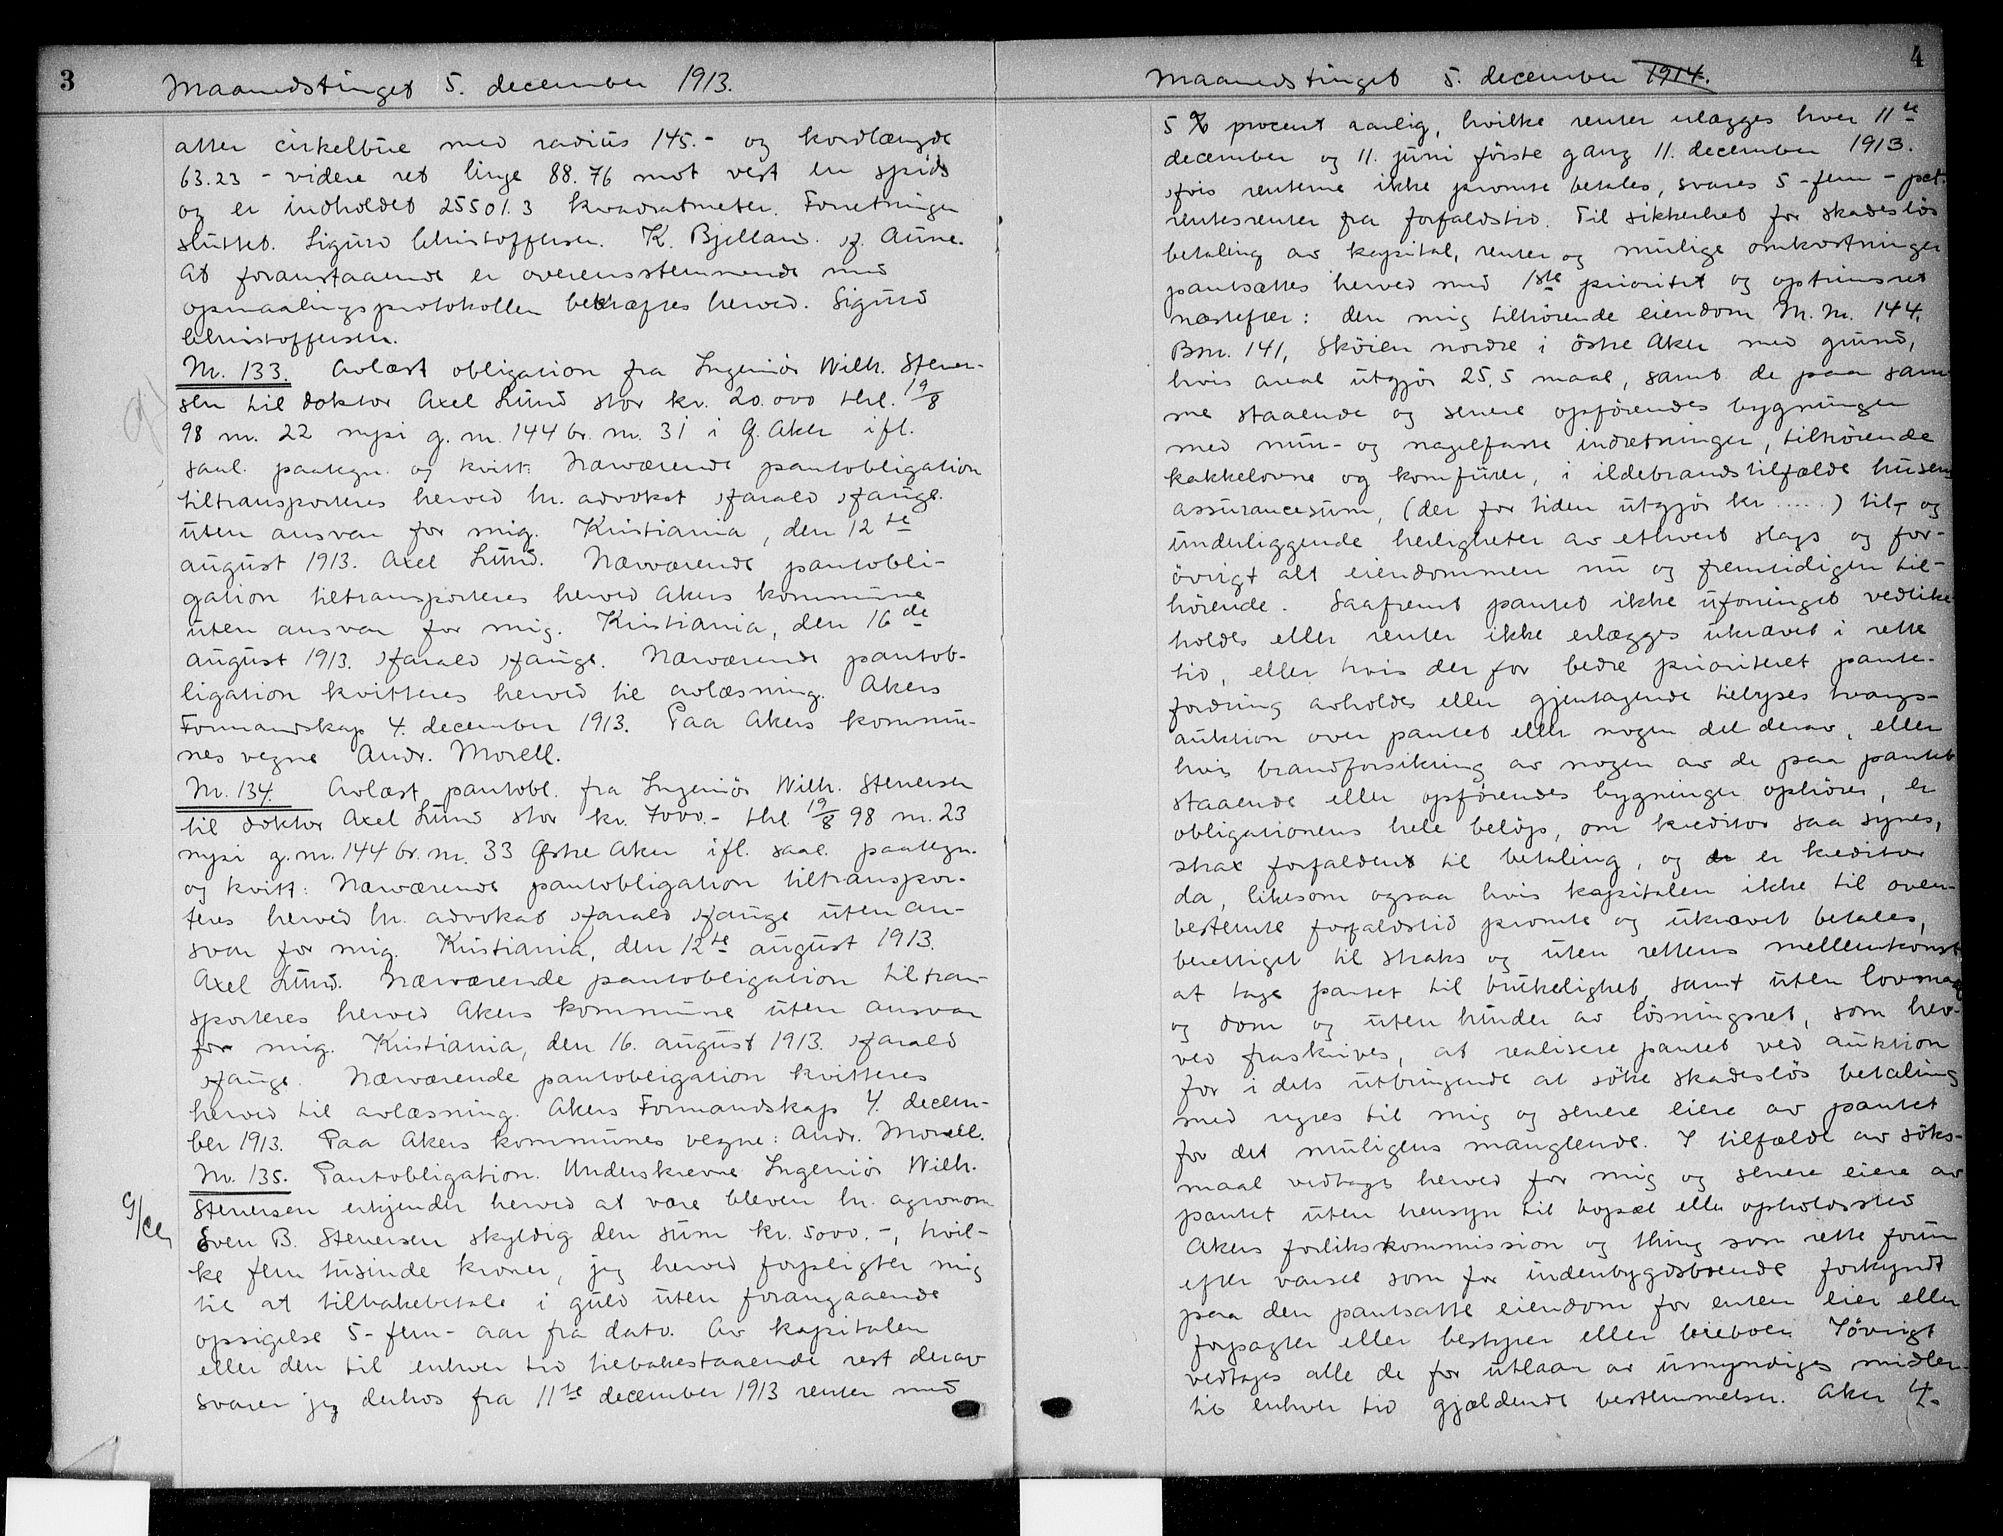 3
Maanedstinget 5. december 1913.
atter cirkelbue med radius 145.- og kordlængde
63.23 - videre ret linje 88.76 mot vest en spids
og er indholdet 25501.3 kvadratmeter. Forretningen
sluttet. Sigurd Christoffersen. K. Bjelland. H. Aune.
At foranstaaende er overensstemmende med
opmaalingsprotokollen bekræftes herved. Sigurd
Christoffersen.
Nr. 133. Avlæst obligation fra Ingeniør Wilh. Stener-
sen til doktor Axel Lund stor kr. 20.000 thl. 19/8
98 nr. 22 nysi g. nr. 144 br. nr. 31 i Ø. Aker ifl.
saal. paategn. og kvitt: Nærværende pantobligation
tiltransporteres herved hr. advokat Harald Hauge.
uten ansvar for mig. Kristiania, den 12te
august 1913. Axel Lund. Nærværende pantobli-
gation tiltransporteres herved Akers kommune
uten ansvar for mig. Kristiania, den 16de
august 1913. Harald Hauge. Nærværende pantob-
ligation kvitteres herved til avlæsning. Akers
Formandskap 4. december 1913. Paa Akers kommu-
nes vegne Andr. Morell.
Nr. 134. Avlæst pantobl. fra Ingeniør Wilh. Stenersen
til doktor Axel Lund stor kr. 7000.- thl. 19/8 98 nr. 23
nysi g. nr. 144 br. nr. 33 Østre Aker ifl. saal. paategn.
og kvitt: Nærværende pantobligation tiltranspor-
teres herved hr. advokat Harald Hauge uten an-
svar for mig. Kristiania, den 12te august 1913.
Axel Lund. Nærværende pantobligation tiltran-
sporteres herved Akers kommune uten ansvar
for mig. Kristiania, den 16. august 1913. Harald
Hauge. Nærværende pantobligation kvitteres
herved til avlæsning. Akers Formandskap 4. decem-
ber 1913. Paa Akers kommunes vegne: Andr. Morell.
Nr. 135. Pantobligation. Underskrevne Ingeniør Wilh.
Stenersen erkjender herved at være bleven hr. agronom
Sven B. Stenersen skyldig den sum kr. 5000.-, hvil-
ke fem tusinde kroner, jeg herved forpligter mig
til at tilbakebetale i guld uten forangaaende
opsigelse 5-fem-aar fra dato. Av kapitalen
eller den til enhver tid tilbakestaaende rest derav
svarer jeg derhos fra 11te december 1913 renter med
4
Maanedstinget 5. december 1914.
5 % procent aarlig, hvilke renter erlægges hver 11te
december og 11. juni første gang 11. december 1913.
Hvis renterne ikke promte betales, svares 5-fem-pct.
rentesrenter fra forfaldstid. Til sikkerhet for skadesløs
betaling av kapital, renter og mulige omkostninger
pantsættes herved med 1ste prioritet og optrinsret
næstefter: den mig tilhørende eiendom M. nr. 144,
Bnr. 141, Skøien nordre i østre Aker med grund,
hvis areal utgjør 25.5 maal, samt de paa sam-
me staaende og senere opførendes bygninger
med mur- og nagelfaste indretninger, tilhørende
kakkelovne og komfurer, i ildebrandstilfælde husenes
assurancesum, (der for tiden utgjør kr .....) til- og
underliggende herligheter av ethvert slags og for-
øvrigt alt eiendommen nu og fremtidigen til-
hørende. Saafremt pantet ikke uforringet vedlike-
holdes eller renter ikke erlægges ukrævet i rette
tid, eller hvis der for bedre prioriteret pante-
fordring avholdes eller gjentagende tillyses tvangs-
auktion over pantet eller nogen del derav, eller
hvis brandforsikring av nogen av de paa pantet
staaende eller opførendes bygninger ophører, er
obligationens hele beløp, om kreditor saa synes,
strax forfalden til betaling, og er kreditor
da, likesom ogsaa hvis kapitalen ikke til oven-
bestemte forfaldstid promte og ukrævet betales,
berettiget til straks og uten rettens mellemkomst
at tage pantet til brukelighet samt uten lovmaal
og dom og uten hinder av løsningsret, som her-
ved fraskrives, at realisere pantet ved auktion
for i dets utbringende at søke skadesløs betaling
med regres til mig og senere eiere av pantet
for det muligens manglende. I tilfælde av søks-
maal vedtages herved for mig og senere eiere av
pantet uten hensyn til bopæl eller opholdssted
Akers forlikskommission og thing som rette forum
efter varsel som for indenbygdsboende forkyndt
paa den pantsatte eiendom for enten eier eller
forpagter eller bestyrer eller leieboer. Iøvrigt
vedtages alle de for utlaan av umyndiges midler
til enhver tid gjældende bestemmelser. Aker 4.